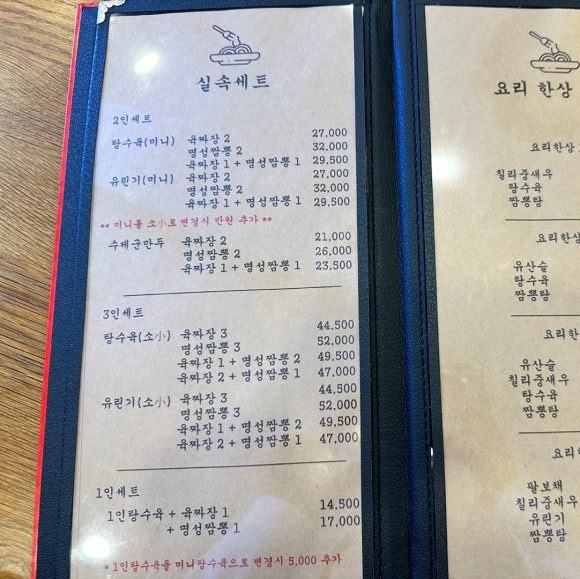 실속세트
2인세트
탕수육(미니) 육짜장 2 27,000
명성짬뽕 2 32,000
육짜장 1 + 명성짬뽕 1 29,500
유린기(미니) 육짜장 2 27,000
명성짬뽕 2 32,000
육짜장 1 + 명성짬뽕 1 29,500
** 미니를 소小로 변경시 만원 추가 **
수제군만두 육짜장 2 21,000
명성짬뽕 2 26,000
육짜장 1 + 명성짬뽕 1 23,500
3인세트
탕수육(소小) 육짜장 3 44,500
명성짬뽕 3 52,000
육짜장 1 + 명성짬뽕 2 49,500
육짜장 2 + 명성짬뽕 1 47,000
유린기(소小) 육짜장 3 44,500
명성짬뽕 3 52,000
육짜장 1 + 명성짬뽕 2 49,500
육짜장 2 + 명성짬뽕 1 47,000
1인세트
1인탕수육 + 육짜장 1 14,500
+ 명성짬뽕 1 17,000
* 1인탕수육을 미니탕수육으로 변경시 5,000 추가
요리 한상
요리한상
칠리중새우
탕수육
짬뽕탕
요리한상
유산슬
탕수육
짬뽕탕
요리한
유산슬
칠리중새우
탕수육
짬뽕탕
요리한
팔보채
칠리중새우
유린기
짬뽕탕